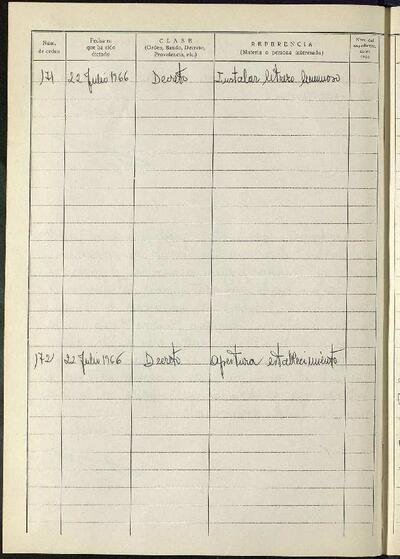 Núm. de orden
Fecha en que ha sido dictado
CLASE
(Orden, Bando, Decreto, Providencia, etc.)
REFERENCIA
(Materia o persona interesada)
Núm. del expediente
171 22 Julio 1966 Decreto Instalar letrero luminoso
172 22 Julio 1966 Decreto Apertura establecimiento